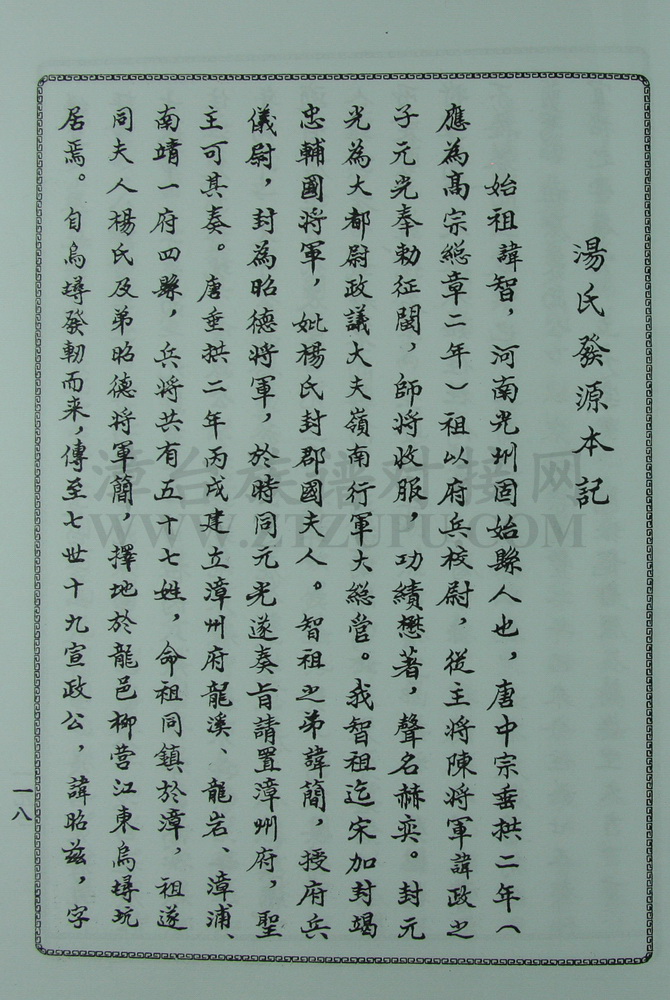 湯氏發源本記
始祖諱智，河南光州固始縣人也，唐中宗垂拱二年（
應為高宗總章二年）祖以府兵校尉，從主將陳將軍諱政之
子元光奉勅征閩，師將收服，功績懋著，聲名赫奕。封元
光為大都尉政議大夫嶺南行軍大總管。我智祖迄宋加封竭
忠輔國將軍，妣楊氏封郡國夫人。智祖之弟諱簡，授府兵
儀尉，封為昭德將軍，於時同元光遂奏旨請置漳州府，聖
主可其奏。唐垂拱二年丙戌建立漳州府龍溪、龍岩、漳浦、
南靖一府四縣，兵將共有五十七姓，命祖同鎮於漳，祖遂
同夫人楊氏及弟昭德將軍簡，擇地於龍邑柳營江東烏墧玩
居焉。自烏墧發軔而來，傳至七世十九宣政公，諱昭茲，字
一八
漳台族譜对接网
WWW.ZTZUPU.COM